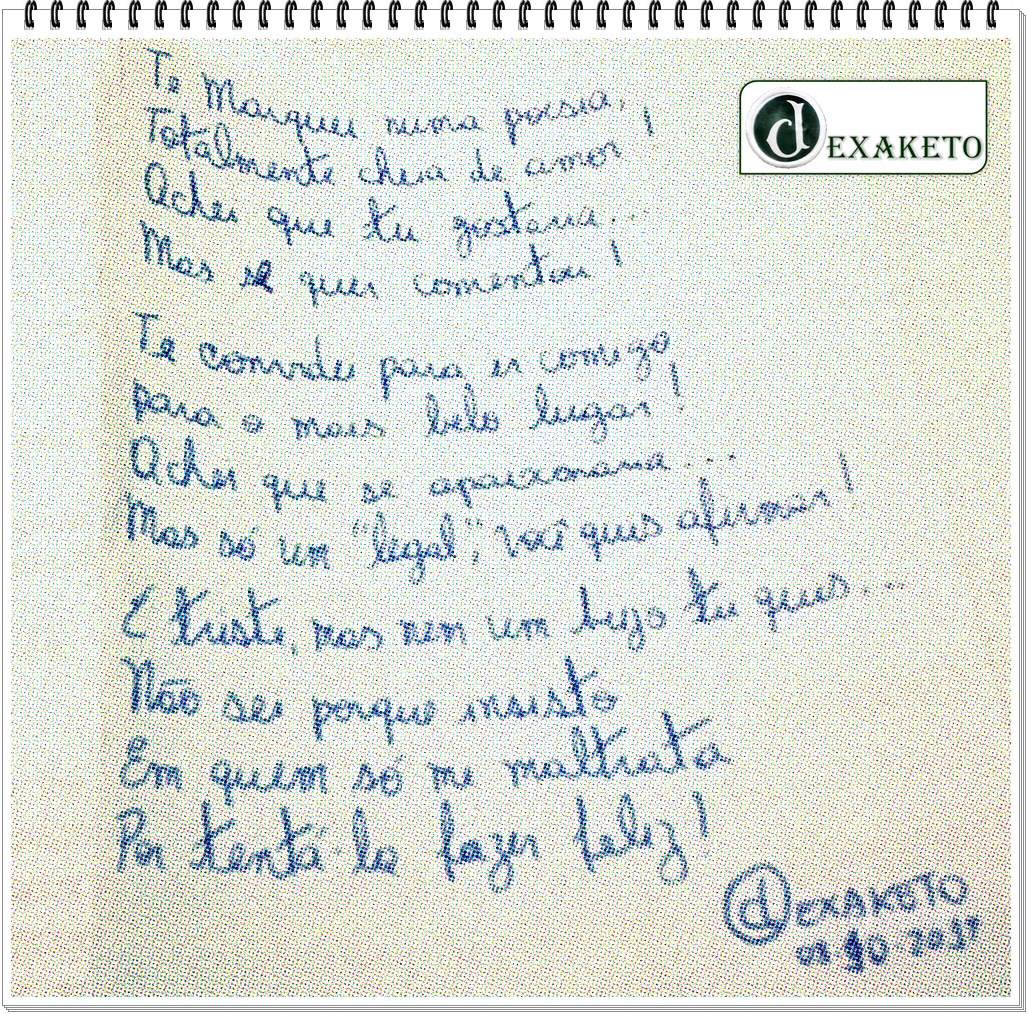 dEXAKETO
Te Marquei numa poesia,
Totalmente cheia de amor!
Achei que tu gostaria...
Mas se quer comentou!
Te convidei para ir comigo
para o mais belo lugar!
Achei que se apaixonaria...
Mas só um "legal", você quis afirmar!
É triste, mas nem um beijo tu quis...
Não sei porque insisto
Em quem só me maltrata
Por tentá-la fazer feliz!
dEXAKETO